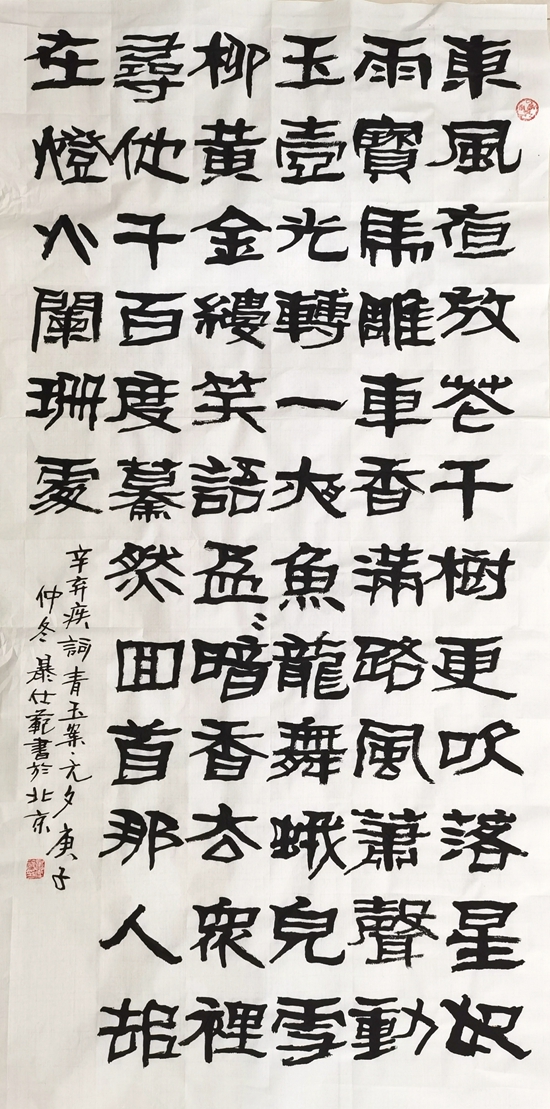 東風夜放花千樹更吹落星如
雨寶馬雕車香滿路風蕭聲動
玉壺光轉一夜魚龍舞蛾兒雪
柳黃金縷笑語盈〻暗香去眾裡
尋他千百度驀然回首那人却
在燈火闌珊處
辛弃疾詞青玉案·元夕庚子
仲冬暴仕範書於北京